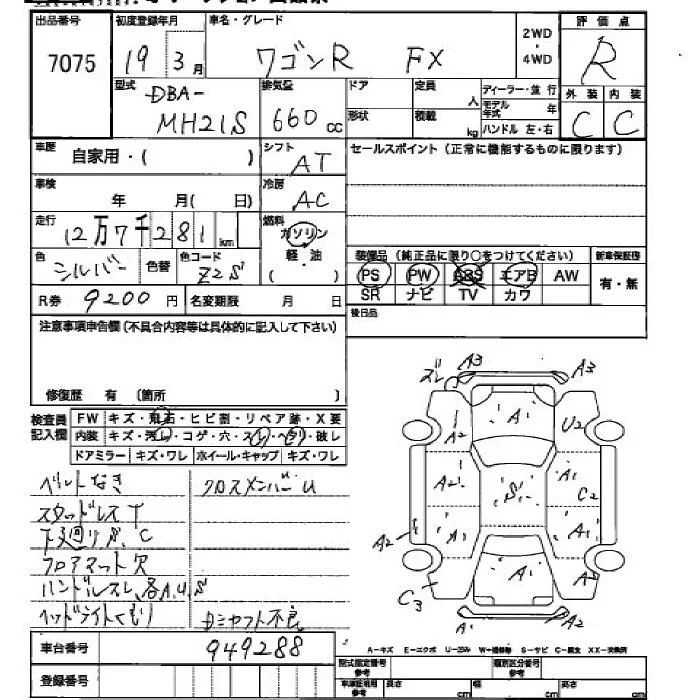 出品番号 初度登録年月 車名・グレード 評価点
7075 19 3月 ワゴンR FX 2WD・4WD R
型式 排気量 ドア 定員 人 ディーラー・並行 外装 内装
DBA-MH21S 660cc 形状 積載 kg モデル年式 年 ハンドル 左・右 C C
車歴 自家用・( ) シフト AT セールスポイント(正常に機能するものに限ります)
車検 年 月( 日) 冷房 AC
走行 12万7千281km 燃料 ガソリン 軽・油 ( )
色 シルバー 色替 色コード Z2S 装備品(純正品に限り○をつけてください) 新車保証書
PS PW ABS エアB AW 有・無
R券 9200円 名変期限 月 日 SR ナビ TV カワ
注意事項申告欄(不具合内容等は具体的に記入して下さい) 後日品
修復歴 有 (箇所 )
検査員記入欄 FW キズ・飛石・ヒビ割・リペア跡・X要
内装 キズ・汚レ・コゲ・穴・スレ・ヘタリ・破レ
ドアミラー キズ・ワレ ホイール・キャップ キズ・ワレ
ズレ A3 A3
A1 U2
A2
A2 S A1 C2
A1 A1
A2 A1 A1
C3 A1 A2
ベルトなき クロスメンバーU
スタッドレスT
下廻りS、C
フロアマット欠
ハンドルスレ、各A.U.S
ヘッドライトくもり カミヤフト不良
A-キズ E-エクボ U-凹み W-補修跡 S-サビ C-腐食 XX-交換済
車台番号 949288 型式指定番号 参考 類別区分番号 参考
登録番号 車庫証明用 参考 長さ cm 幅 cm 高さ cm